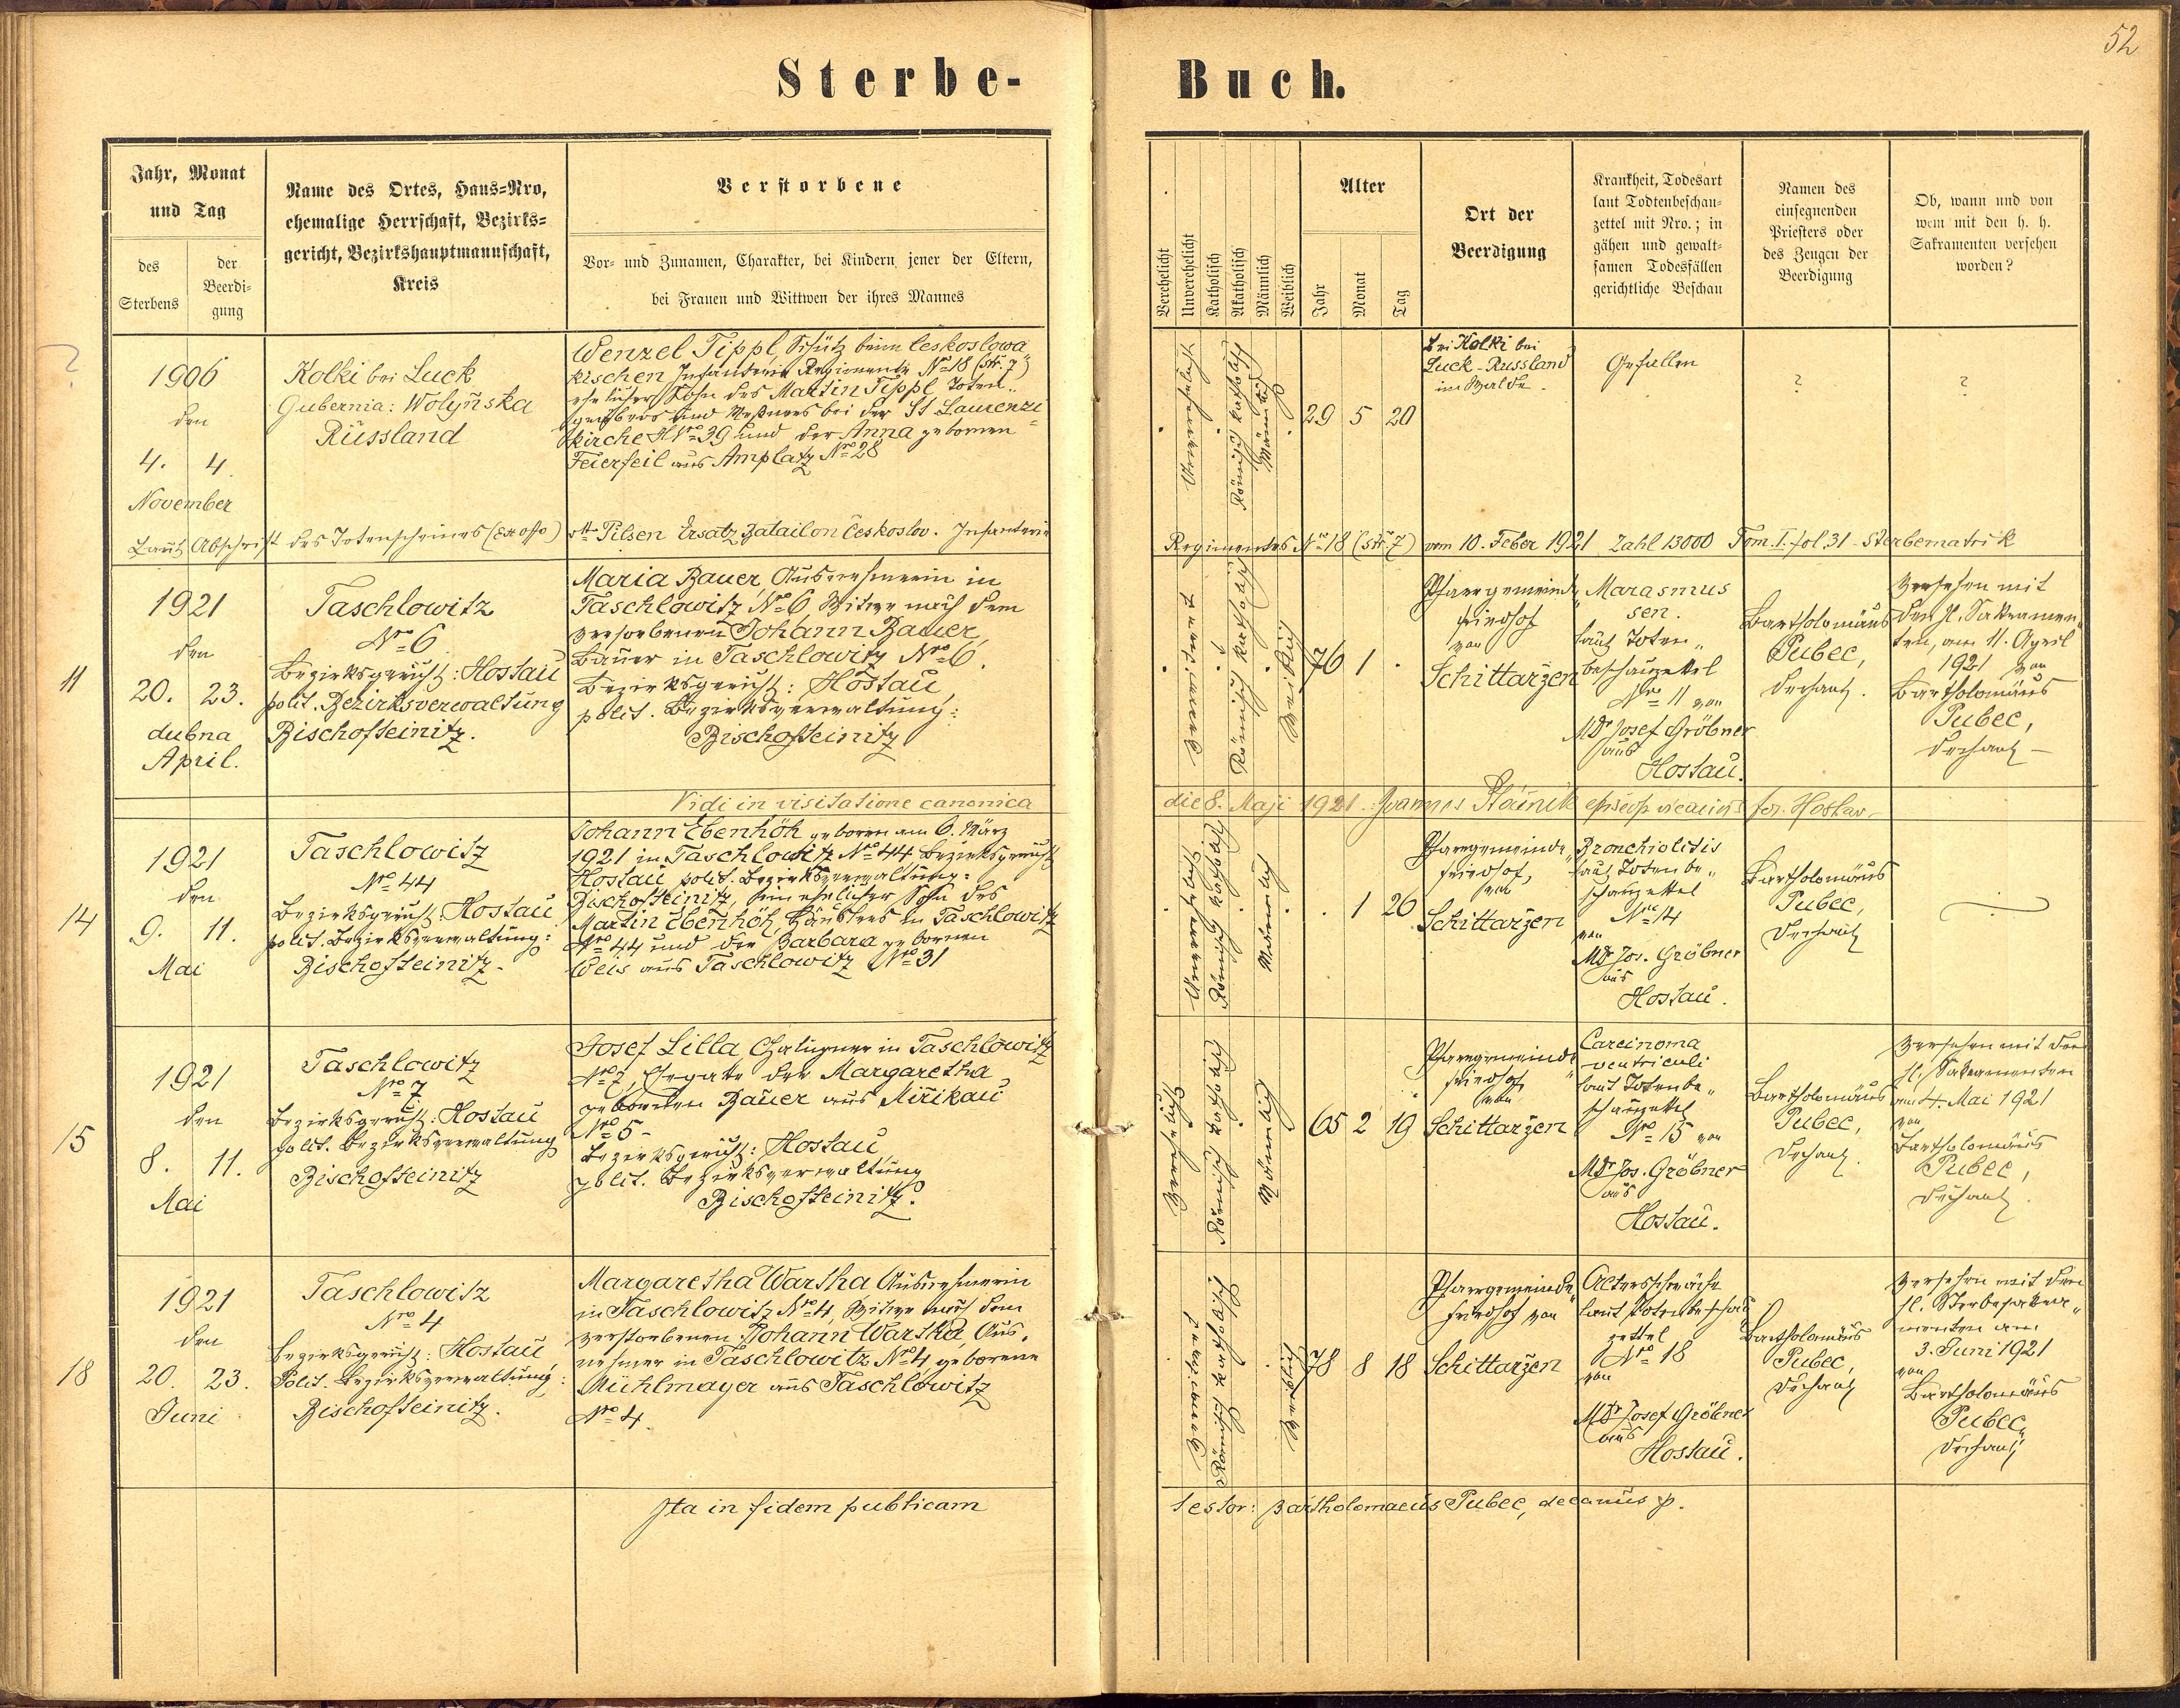 52
Sterbe-
Buch.
Jahr, Monat
und Tag
des
Sterbens
der
Beerdi-
gung
Name des Ortes, Haus-Nro,
ehemalige Herrschaft, Bezirks-
gericht, Bezirkshauptmannschaft,
Kreis
Verstorbene
Vor- und Zunamen, Charakter, bei Kindern jener der Eltern,
bei Frauen und Wittwen der ihres Mannes
Verehelicht
Unverehelicht
Katholisch
Akatholisch
Männlich
Weiblich
Alter
Jahr
Monat
Tag
Ort der
Beerdigung
Krankheit, Todesart
laut Todtenbeschau-
zettel mit Nro.; in
gähen und gewalt-
samen Todesfällen
gerichtliche Beschau
Namen des
einsegnenden
Priesters oder
des Zeugen der
Beerdigung
Ob, wann und von
wem mit den h. h.
Sakramenten versehen
worden?
?
1906
den
4. 4.
November
Kolki bei Luck
Gubernia: Wolyńska
Russland
Wenzel Tippl, Schütz beim československa
kischen Infanterie Regimente No 18 (str. 7)
ehelicher Sohn des Martin Tippl, Toten-
gräbers und Meßners bei der St Laurenzi-
kirche HNro 39 und der Anna gebornen
Feierfeil aus Amplatz Nro 28
Unverehelicht
Römisch katholisch
Männlich
29 5 20
bei Kolki bei
Luck-Russland
im Walde.
Gefallen
?
?
Laut Abschrift des Totenscheines (Ex offo) dtto Pilsen Ersatz Batailon Českoslov. Infanterie
Regimentes No 18 (str. 7) vom 10. Feber 1921 Zahl 13000 Tom. I. fol. 31 - Sterbematrik
11
1921
den
20. 23.
dubna
April.
Taschlowitz
Nro 6
Bezirksgericht: Hostau
polit. Bezirksverwaltung
Bischofteinitz.
Maria Bauer, Ausnehmerin in
Taschlowitz Nro 6 Witwe nach dem
verstorbenen Johann Bauer,
Bauer in Taschlowitz Nro 6.
Bezirksgericht: Hostau,
polit. Bezirksverwaltung:
Bischofteinitz
Verwitwet
Römisch katholisch
Weiblich
76 1 .
Pfarrgemeinde-
friedhof
von
Schittaržen
Marasmus
sen.
laut Toten-
beschauzettel
Nro 11 von
MDr Josef Gröbner
aus
Hostau.
Bartholomäus
Pubec,
Dechant.
Versehen mit
den hl. Sakramen-
ten, am 11. April
1921 von
Bartholomäus
Pubec,
Dechant -
Vidi in visitatione canonica
die 8. Maji 1921. Joannes episcop. vicarius for. Hostav.
14
1921
den
9. 11.
Mai
Taschlowitz
Nro 44
Bezirksgericht: Hostau
polit. Bezirksverwaltung:
Bischofteinitz.
Johann Ebenhöh geboren am 6. März
1921 in Taschlowitz Nro 44, Bezirksgericht
Hostau polit. Bezirksverwaltung:
Bischofteinitz, ein ehelicher Sohn des
Martin Ebenhöh, Häuslers in Taschlowitz
Nro 44 und der Barbara gebornen
Weis aus Taschlowitz Nro 31
Unverehelicht
Römisch katholisch
Männlich
. 1 26
Pfarrgemeinde-
friedhof,
von
Schittaržen
Bronchiolitis
laut Totenbe-
schauzettel
Nro 14
von
MDr Jos. Gröbner
aus
Hostau.
Bartholomäus
Pubec,
Dechant
15
1921
den
8. 11.
Mai
Taschlowitz
Nro 7
Bezirksgericht: Hostau
polit. Bezirksverwaltung
Bischofteinitz
Josef Lilla, Chalupner in Taschlowitz
Nro 7, Ehegatte der Margaretha
gebornen Bauer aus Mirikau
Nro 5-
Bezirksgericht: Hostau,
polit. Bezirksverwaltung
Bischofteinitz.
Verehelicht
Römisch katholisch
Männlich
65 2 19
Pfarrgemeinde-
friedhof
von
Schittaržen
Carcinoma
ventriculi
laut Totenbe-
schauzettel
Nro 15 von
MDr Jos. Gröbner
aus
Hostau.
Bartholomäus
Pubec,
Dechant.
Versehen mit den
hl. Sakramenten
am 4. Mai 1921
von
Bartholomäus
Pubec,
Dechant.
18
1921
den
20. 23.
Juni
Taschlowitz
Nro 4
Bezirksgericht: Hostau
Polit. Bezirksverwaltung:
Bischofteinitz.
Margaretha Wartha Ausnehmerin
in Taschlowitz Nro 4, Witwe nach dem
verstorbenen Johann Wartha, Aus-
nehmer in Taschlowitz Nro 4, geborene
Mühlmayer aus Taschlowitz
Nro 4.
Verwitwet
Römisch katholisch
Weiblich
78 8 18
Pfarrgemeinde-
friedhof von
Schittaržen
Altersschwäche
laut Totenbeschau-
zettel
Nro 18
von
MDr Josef Gröbner
aus
Hostau.
Bartholomäus
Pubec,
Dechant
Versehen mit den
hl. Sterbesakra-
menten am
3. Juni 1921
von
Bartholomäus
Pubec,
Dechant
Ita in fidem publicam
testor: Bartholomaeus Pubec, decanus p.